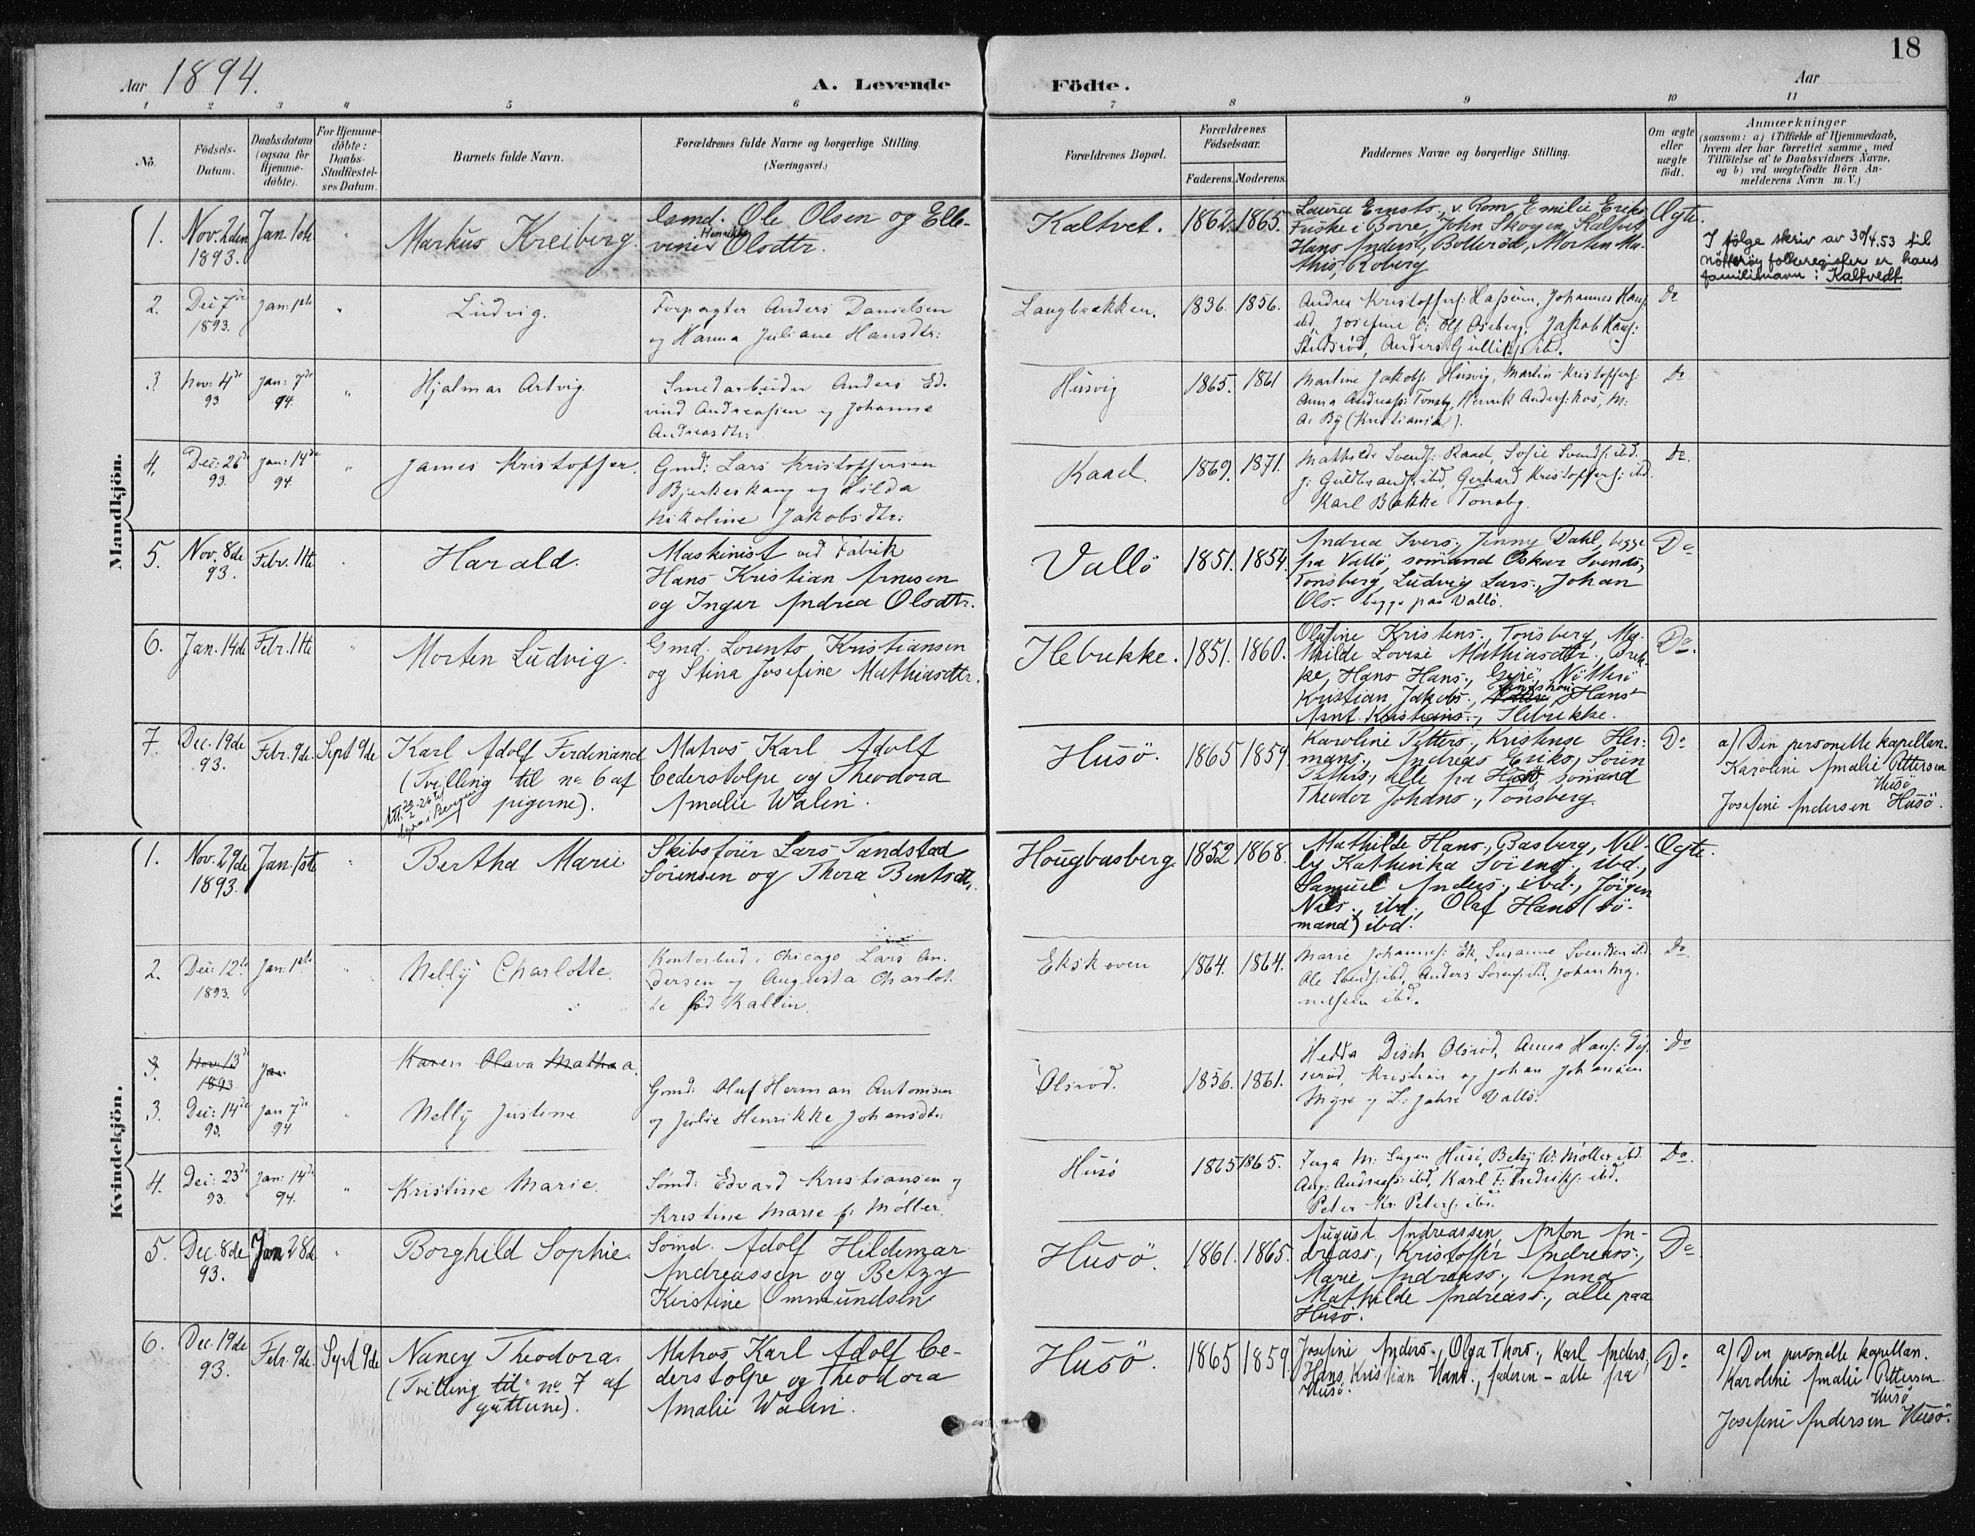 18
Aar 1894.
A. Levende
Födte.
Aar
1 2 3 4 5 6 7 8 9 10 11
No.
Födsels-
Datum.
Daabsdatum
(ogsaa for
Hjemme-
döbte).
For Hjemme-
döbte:
Daabs-
Stadfæstel-
ses Datum.
Barnets fulde Navn.
Forældrenes fulde Navne og borgerlige Stilling.
(Næringsvei.)
Forældrenes Bopæl.
Forældrenes
Födselsaar.
Faderens. Moderens.
Faddernes Navne og borgerlige Stilling.
Om ægte
eller
uægte
födt.
Anmærkninger
(saasom: a) i Tilfælde af Hjemmedaab,
hvem der har forrettet samme, med
Tilföielse af to Daabsvidners Navne,
og b) ved uægtefödte Börn An-
melderens Navn m. V.)
Mandkjön.
1. Nov. 2den
1893.
Jan. 1ste
"
Markus Kreiberg.
Gmd. Ole Olsen og Elle-
vine Henrikke Olsdtr.
Kaltvet.
1862. 1865.
Laura Ernsts., v. Rom, Emilie Eriks.
Fuske i Borre, John Skogen, Kaltvet
Hans Anders., Bollerød, Morten Ma-
this., Roberg
Ægte.
I følge skriv av 30/4.53 til
Nøtterøy folkeregister er hans
familienavn : Kaltvedt.
2. Dec 7de
1893.
Jan: 1ste
"
Ludvig.
Forpagter Anders Danielsen
og Hanna Juliane Hansdtr:
Langbrekken.
1836. 1856.
Andrea Kristoffers: Hassum, Johannes Hans:
ibd, Josefine Oseberg, Jakob Hans:
Anders Gulliks: ibd.
Do
3 Nov: 4de
93
Jan: 7de
94.
"
Hjalmar Artvig.
Smedarbeider Anders Ed-
vind Andreassen og Johanne
Andreasdtr.
Husvig
1865. 1861
Martine Jakobs: Husvig, Martin Kristoffers:
Anna Andreass: Tonsbg, Henrik Anders: Ros, M:
A. By (Kristiania).
Do
4. Dec: 26de
93.
Jan: 14de
94.
"
James Kristoffer.
Gmd: Lars Kristoffersen
Bjerkeskaug og Hilda
Nikoline Jakobsdtr:
Raael.
1869. 1871.
Mathilde Svends: Raael, Sofie Svends: ibd.
J: Guldbrands: ibd, Gerhard Kristoffers: ibd.
Karl Bakke Tonsbg.
Do.
5. Nov. 8de
93.
Febr. 11te
Harald.
Maskinist ved Fabrik
Hans Kristian Arnesen
og Inger Andrea Olsdtr.
Vallö
1851. 1854.
Andrea Ivers., Jenny Dahl, begge
fra Vallö, sömand Oskar Svends.,
Tönsberg, Ludvig Lars., Johan
Ols. begge paa Vallö.
Do
6. Jan. 14de
Febr. 11te
"
Morten Ludvig.
Gmd. Lorents Kristiansen
og Stina Josefine Mathiasdtr.
Ilebrekke.
1851. 1860.
Olufine Kristens., Tönsberg, Ma-
thilde Lovise Mathiasdtr., Brek-
ke, Hans Hans., Nötterö
Kristian Jakobs., Hans
Arnt Kristians., Ilebrekke.
Do.
7. Dec. 19de
93.
Febr. 9de.
Sept 9de
Karl Adolf Ferdinand
(Tvilling til no 6 af
pigerne).
Att. 23-2-26 til
Bergen
Matros Karl Adolf
Cederstolpe og Theodora
Amalie Walin.
Husö.
1865 1859
Karoline Petters., Kristense Her-
mans., Andreas Eriks., Sören
Pettrs., alle fra Husö, sömand
Theodor Johans., Tönsberg.
Do
a) Den personelle kapellan.
Karoline Amalie Pettersen
Husö
Josefine Andersen Husö.
Kvindekjön.
1. Nov. 29de
1893.
Jan. 1ste
"
Bertha Marie
Skibsförer Lars Tandstad
Sörensen og Thora Berntsdtr.
Hougbasberg
1852 1868.
Mathilde Hans., Basberg, Nil-
ly Kathinka Sörens., ibd.,
Samuel Anders., ibd., Jörgen
Nils., ibd., Olaf Hans. (sö-
mand) ibd.
Ægte.
2. Dec: 12te
1893.
Jan: 1ste
"
Nelly Charlotte.
Kontorbud i Chicago Lars An-
dersen og Augusta Charlot-
te fød Kallin.
Ekskoven
1864. 1864.
Marie Johannes: Ek, Susanne Svendsen ibd
Ole Svends: ibd, Anders Sørens: ibd, Johan Mag-
nussen ibd.
Do
3. Nov: 13de
1893
Jan
Karen Olava Mathea.
3. Dec: 14de
93.
Jan 7de
94
"
Nelly Justine
Gmd: Oluf Herman Antonisen
og Julie Henrikke Johansdtr:
Olsrød.
1856. 1861.
Hedda Disch Olsrød, Anna Hans:
Kristian og Johan Johansen
Myre og L: Jahre Vallø.
Do
4. Dec: 23de
93.
Jan: 14de
94.
"
Kristine Marie.
Sømd: Edvard Kristiansen og
Kristine Marie f: Møller.
Husø
1865 1865.
Inga M: Husø, Betzy W: Møller ibd.
Aug: Andreass: ibd, Karl F: Frederiks: ibd.
Peter Kr. Peters: ibd.
Do.
5. Dec. 8de
93.
Jan 28de
"
Borghild Sophie.
Sömd. Adolf Hildemar
Andreassen og Betzy
Kirstine Ommundsen
Husö.
1861. 1865.
August Andreassen, Anton An-
dreass., Kristoffer Andreass.,
Marie Andreass., Anna
Mathilde Andreass., alle paa
Husö.
Do
6. Dec. 19de
93.
Febr. 9de.
Sept 9de
Nancy Theodora.
(Tvilling til no 7 af
guttene).
Matros Karl Adolf Ce-
derstolpe og Theodora
Amalie Walin.
Husö.
1865 1859
Josefine Anders., Olga Thors., Karl Anders.,
Hans Kristian Hans., faderen - alle fra
Husö.
Do
a) Den personelle kapellan.
Karoline Amalie Pettersen
Husö
Josefine Andersen Husö.